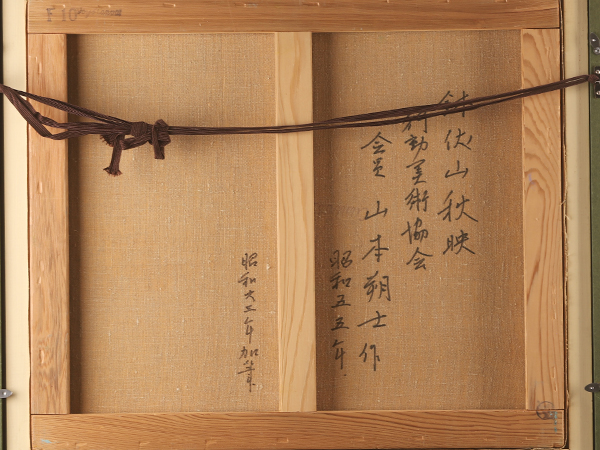 F10
鉢伏山秋映
行動美術協会
会員 山本朔士作
昭和五五年
昭和六三年加筆